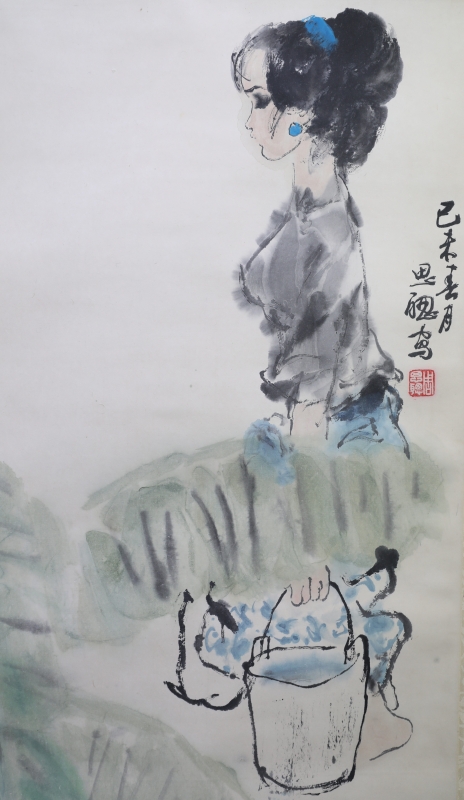 己未春月
思聰写